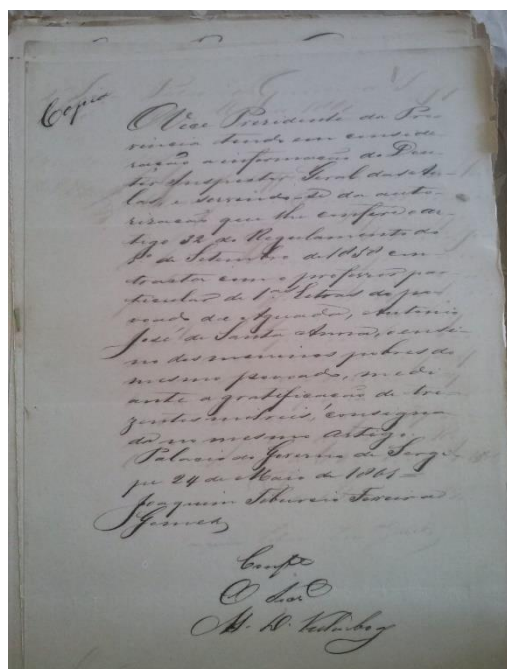 Copia
O Vice Presidente da Pro-
vincia tendo em conside-
ração a informação do Dou-
tor Inspector Geral das Au-
las, e servindo-se da auto-
risação que lhe confere o ar-
tigo 32 do Regulamento do
1º de Setembro de 1858 con-
tracta com o professor par-
ticular de 1as Letras do po-
voado de Aguada, Antonio
José de Santa Anna, o ensi-
no dos meninos pobres do
mesmo povoado, medi-
ante a gratificação de tre-
zentos mil reis, consigna-
da no mesmo artigo.
Palacio do Governo de Sergi-
pe 24 de Maio de 1861 =
Joaquim Tiburcio Ferreira
Gomes
Confe
O